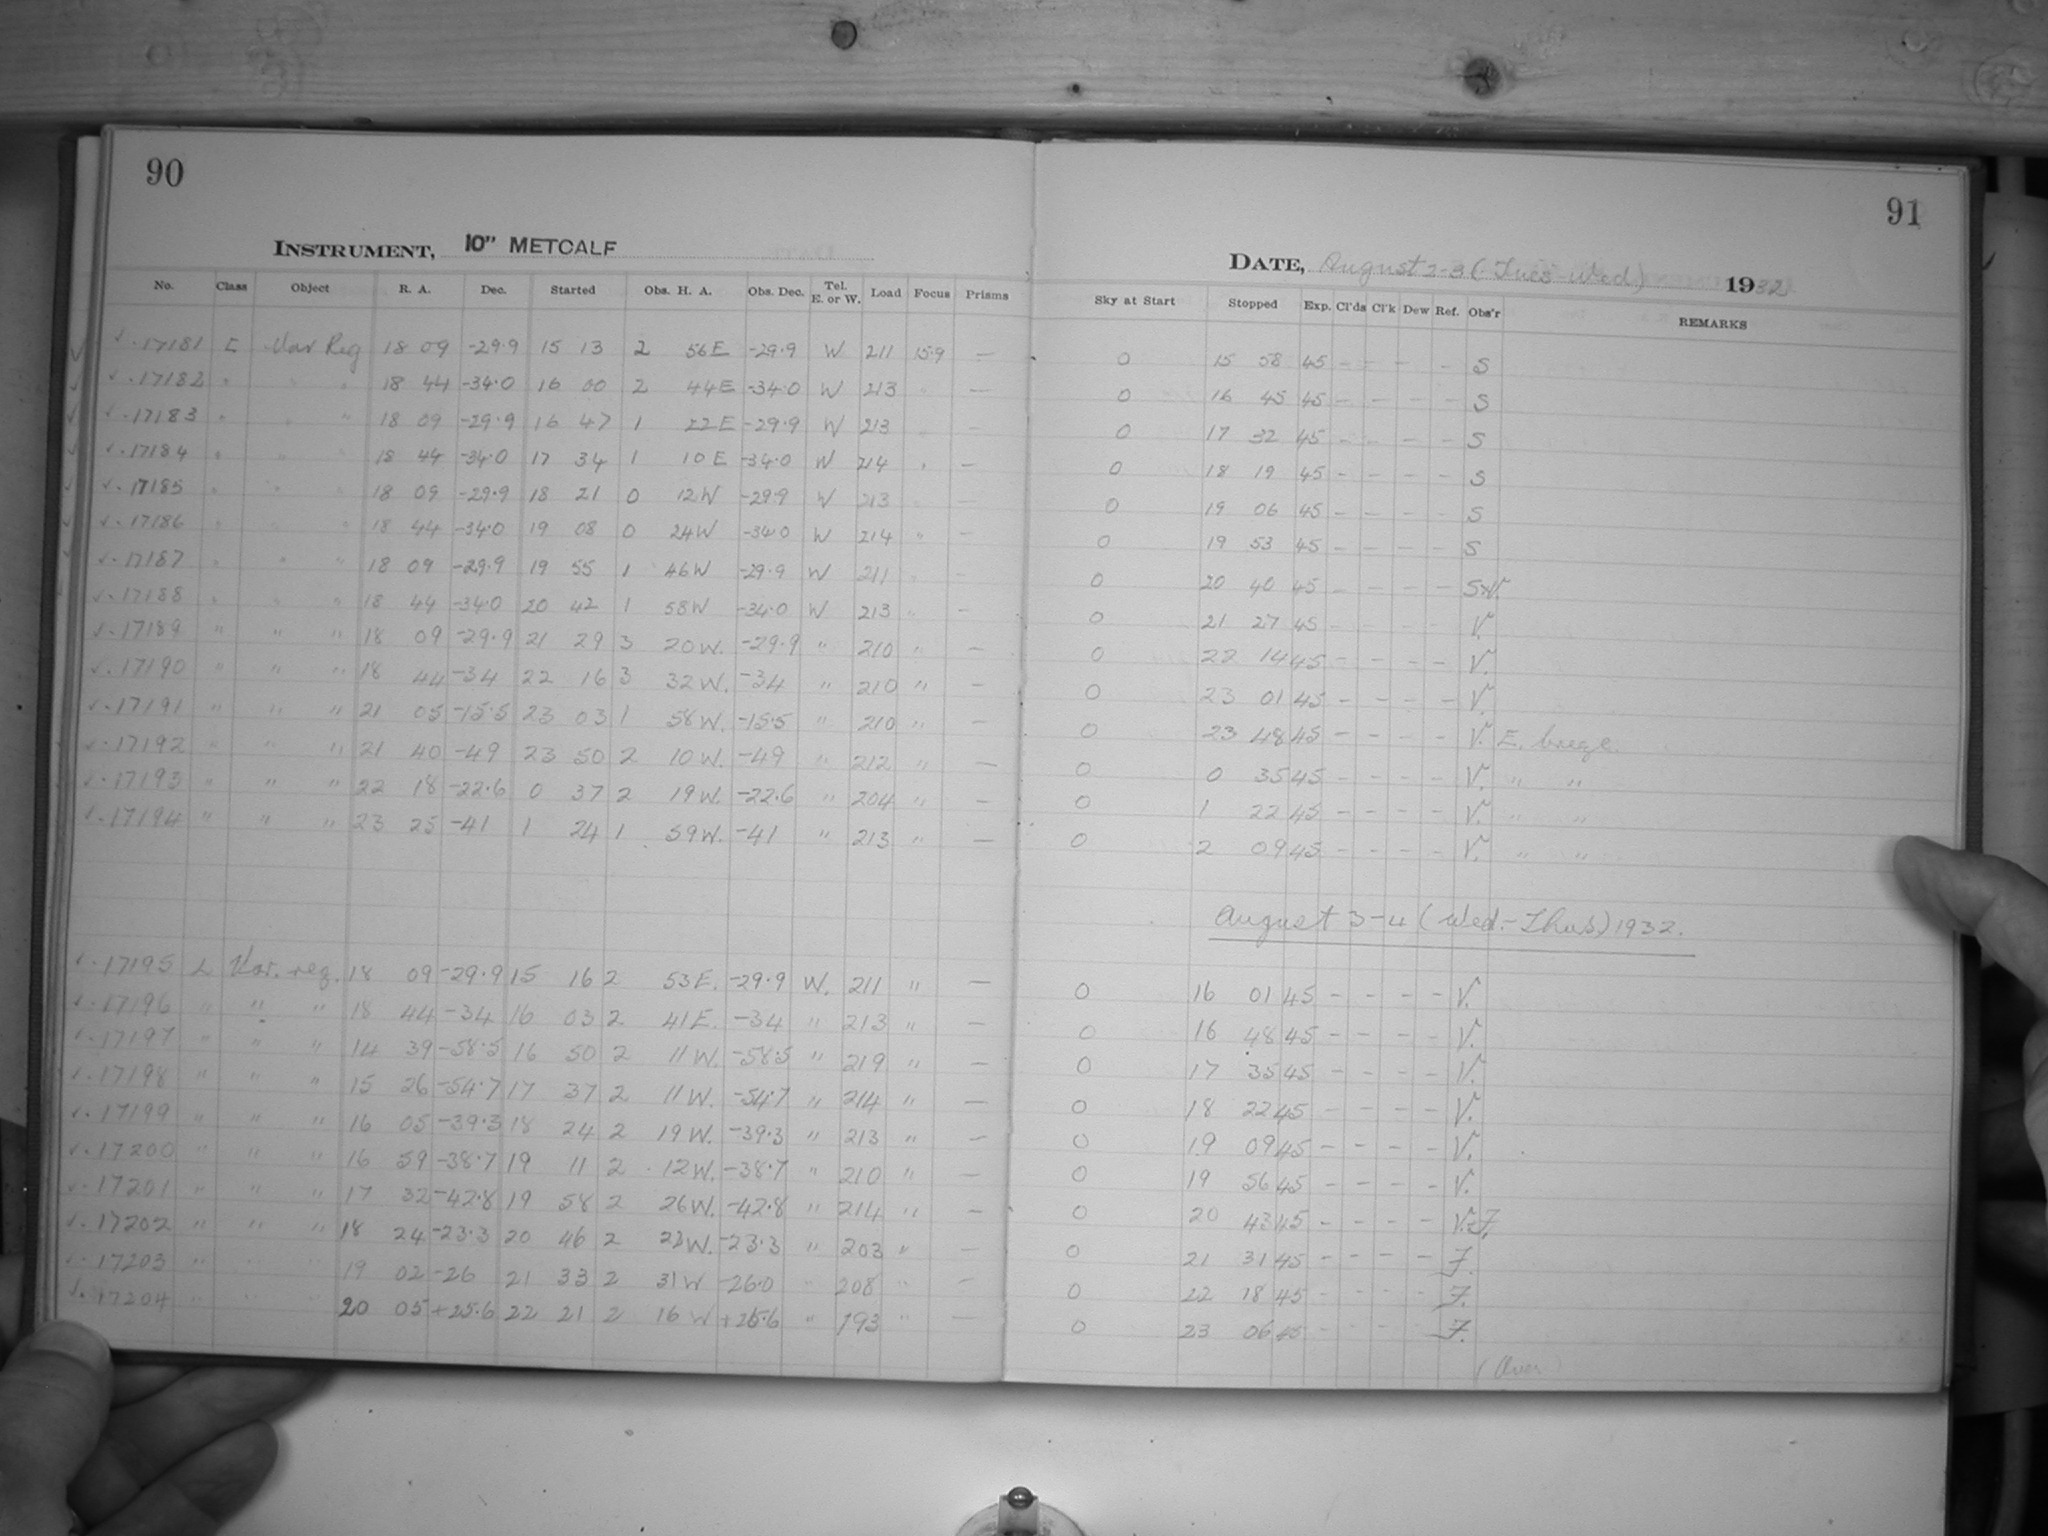 90
INSTRUMENT, 10" METCALF
No. Class Object R. A. Dec. Started Obs. H. A. Obs. Dec. Tel. E. or W. Load Focus Prisms
17181 L Var Reg 18 09 -29.9 15 13 2 56E -29.9 W 211 15.9 —
17182 " " " 18 44 -34.0 16 00 2 44E -34.0 W 213 " —
17183 " " " 18 09 -29.9 16 47 1 22E -29.9 W 213 " —
17184 " " " 18 44 -34.0 17 34 1 10E -34.0 W 214 " —
17185 " " " 18 09 -29.9 18 21 0 12W -29.9 W 213 " —
17186 " " " 18 44 -34.0 19 08 0 24W -34.0 W 214 " —
17187 " " " 18 09 -29.9 19 55 1 46W -29.9 W 211 " —
17188 " " " 18 44 -34.0 20 42 1 58W -34.0 W 213 " —
17189 " " " 18 09 -29.9 21 29 3 20W. -29.9 " 210 " —
17190 " " " 18 44 -34 22 16 3 32W. -34 " 210 " —
17191 " " " 21 05 -15.5 23 03 1 58W. -15.5 " 210 " —
17192 " " " 21 40 -49 23 50 2 10W. -49 " 212 " —
17193 " " " 22 18 -22.6 0 37 2 19W. -22.6 " 204 " —
17194 " " " 23 25 -41 1 24 1 59W. -41 " 213 " —
17195 L Var. reg. 18 09 -29.9 15 16 2 53E. -29.9 W. 211 " —
17196 " " " 18 44 -34 16 03 2 41E. -34 " 213 " —
17197 " " " 14 39 -58.5 16 50 2 11W. -58.5 " 219 " —
17198 " " " 15 26 -54.7 17 37 2 11W. -54.7 " 214 " —
17199 " " " 16 05 -39.3 18 24 2 19W. -39.3 " 213 " —
17200 " " " 16 59 -38.7 19 11 2 12W. -38.7 " 210 " —
17201 " " " 17 32 -42.8 19 58 2 26W. -42.8 " 214 " —
17202 " " " 18 24 -23.3 20 46 2 22W. -23.3 " 203 " —
17203 " " " 19 02 -26 21 33 2 31W -26.0 " 208 " —
17204 " " " 20 05 +25.6 22 21 2 16W +25.6 " 193 " —
91
DATE, August 2-3 (Tues-Wed) 1932
Sky at Start Stopped Exp. Cl'ds Cl'k Dew Ref. Obs'r REMARKS
0 15 58 45 - - - - S
0 16 45 45 - - - - S
0 17 32 45 - - - - S
0 18 19 45 - - - - S
0 19 06 45 - - - - S
0 19 53 45 - - - - S
0 20 40 45 - - - - S.V.
0 21 27 45 - - - - V.
0 22 14 45 - - - - V.
0 23 01 45 - - - - V.
0 23 48 45 - - - - V. E.
0 0 35 45 - - - - V. " "
0 1 22 45 - - - - V. " "
0 2 09 45 - - - - V. " "
August 3-4 (Wed.-Thus) 1932.
0 16 01 45 - - - - V.
0 16 48 45 - - - - V.
0 17 35 45 - - - - V.
0 18 22 45 - - - - V.
0 19 09 45 - - - - V.
0 19 56 45 - - - - V.
0 20 43 45 - - - - V.-F.
0 21 31 45 - - - - F.
0 22 18 45 - - - - F.
0 23 06 45 - - - - F.
(Over)